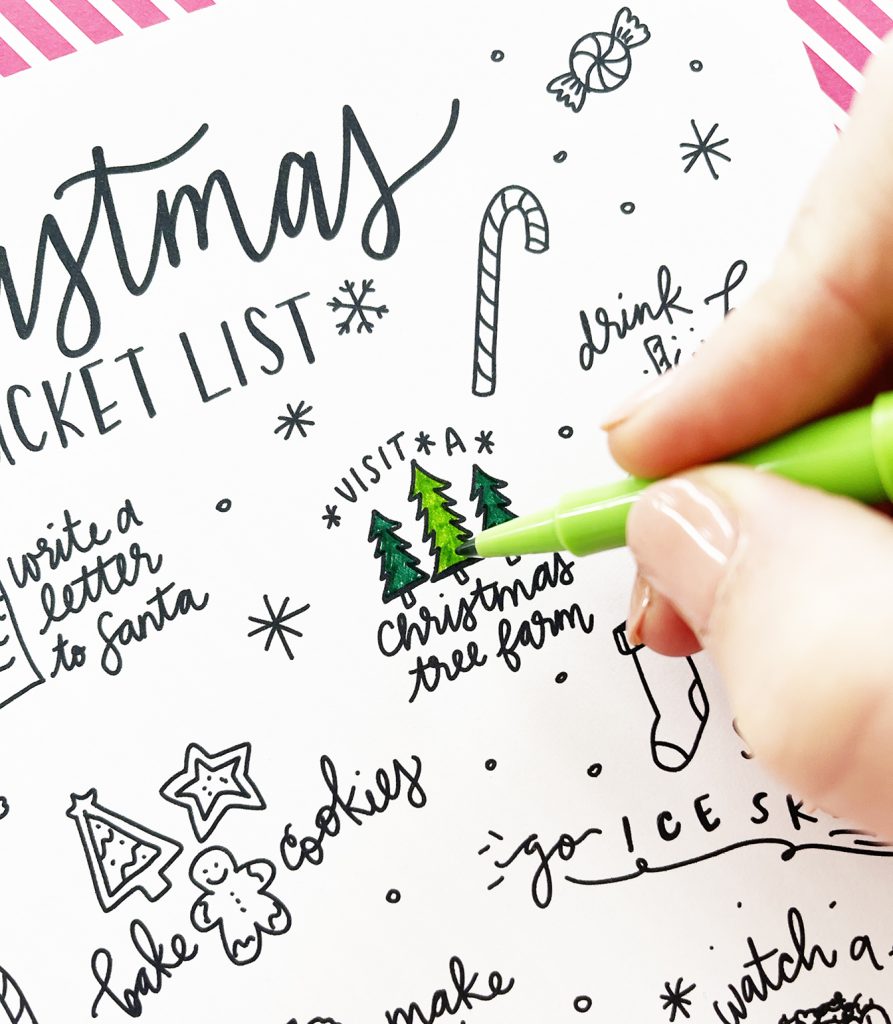 stmas
CKET LIST
drink
VISIT A
christmas
tree farm
write a
letter
to Santa
bake cookies
go ICE SK
make
watch a